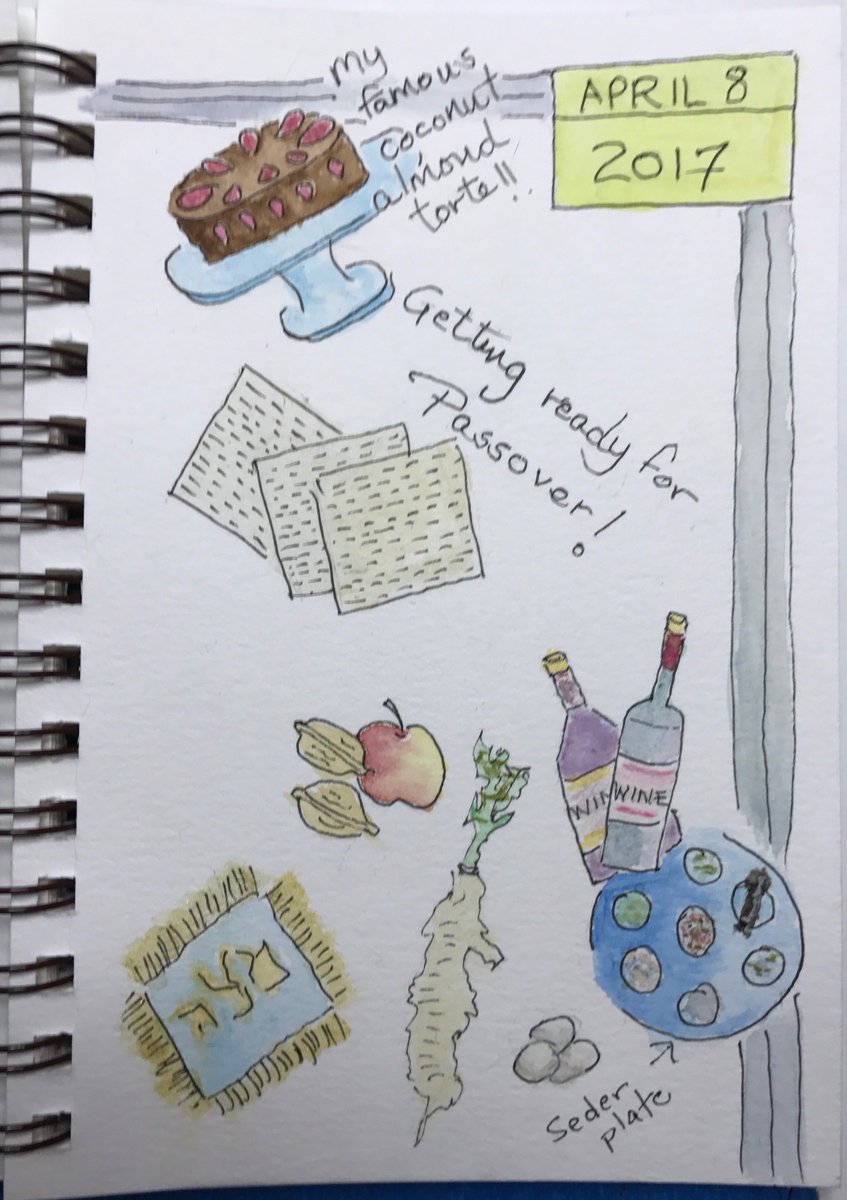 My
famous
coconut
almond
torte!!
APRIL 8
2017
Getting ready for
Passover!
WIN
WINE
Seder
plate